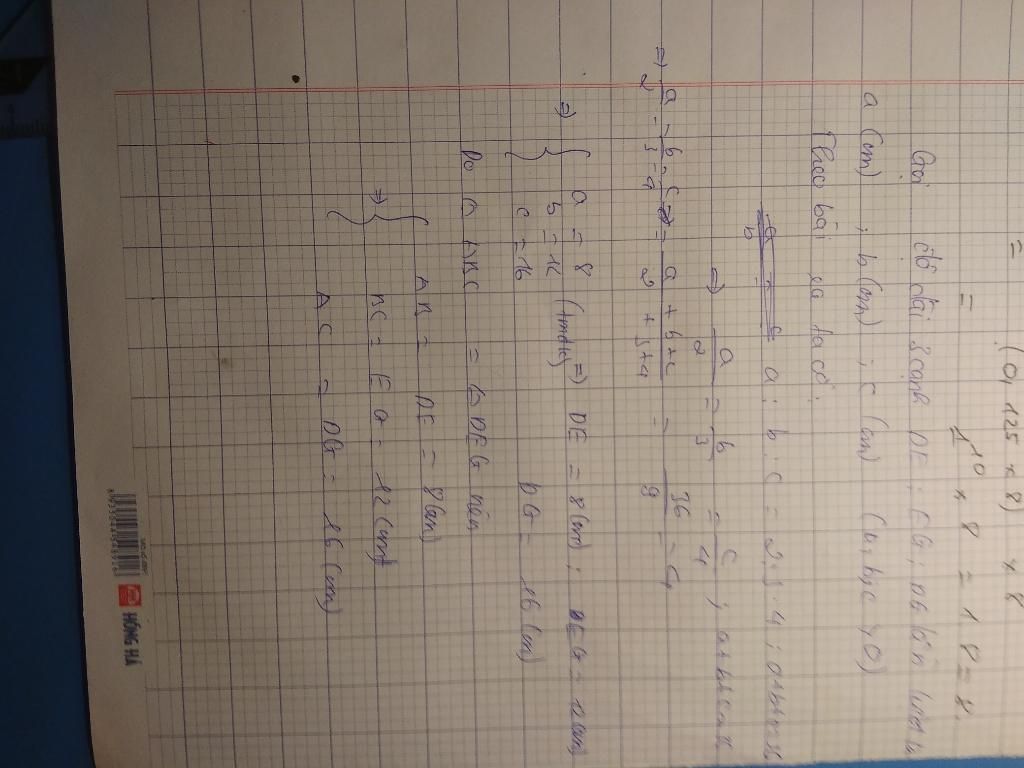 = (0,125 x 8) x 8
= 1^10 x 8 = 1 8 = 8.
Gọi độ dài 3 cạnh DE ; EG ; DG lần lượt là
a (cm) ; b (cm) ; c (cm) (a, b, c > 0)
Theo bài ra ta có:
a : b : c = 2 : 3 : 4 ; a+b+c = 36
=) a/2 = b/3 = c/4 ; a+b+c = 36
=) a/2 = b/3 = c/4 = a + b + c / 2 + 3 + 4 = 36/9 = 4
=) { a = 8 b = 12 c = 16 (tmđk) =) DE = 8 (cm) ; EG = 12 (cm)
DG = 16 (cm)
Do △ ABC = △ DEG nên
=) { AB = DE = 8 (cm)
BC = EG = 12 (cm)
AC = DG = 16 (cm)
HỒNG HÀ